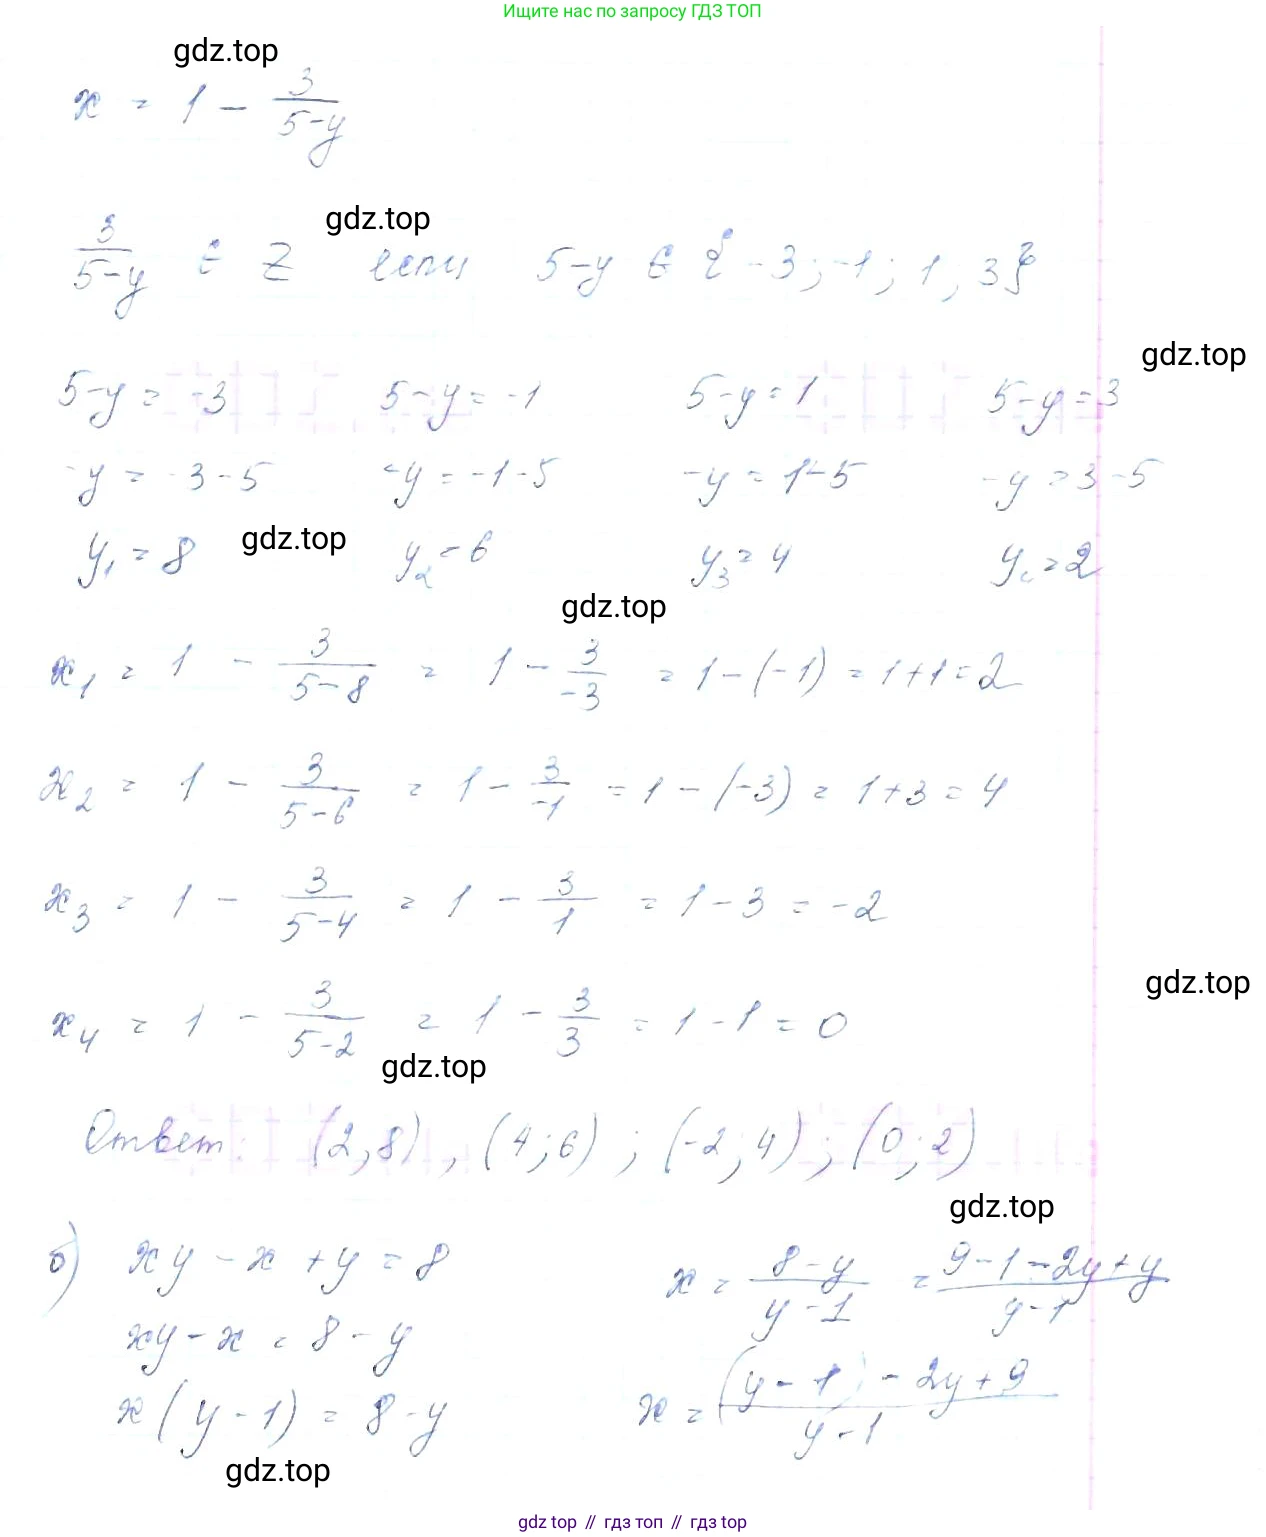 Ищите нас по запросу ГДЗ ТОП
gdz.top
x = 1 - 3/(5-y)
gdz.top
3/(5-y) ∈ Z если 5-y ∈ {-3; -1; 1; 3}
gdz.top
5-y = -3    5-y = -1    5-y = 1    5-y = 3
-y = -3-5    -y = -1-5    -y = 1-5    -y = 3-5
y₁ = 8    gdz.top    y₂ = 6    y₃ = 4    y₄ = 2
gdz.top
x₁ = 1 - 3/(5-8) = 1 - 3/(-3) = 1-(-1) = 1+1 = 2
x₂ = 1 - 3/(5-6) = 1 - 3/(-1) = 1-(-3) = 1+3 = 4
x₃ = 1 - 3/(5-4) = 1 - 3/1 = 1-3 = -2
gdz.top
x₄ = 1 - 3/(5-2) = 1 - 3/3 = 1-1 = 0
gdz.top
Ответ: (2;8), (4;6); (-2;4); (0;2)
gdz.top
б) xy - x + y = 8    x = (8-y)/(y-1) = (9-1-2y+y)/(y-1)
xy - x = 8 - y
x(y-1) = 8-y    x = ((y-1)-2y+9)/(y-1)
gdz.top
gdz top // гдз топ // gdz top